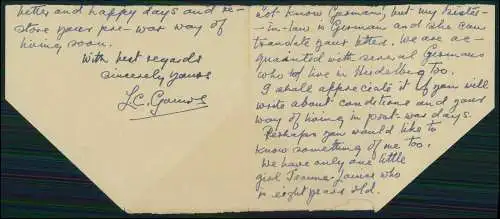 better and happy days and re-
store your pre-war way of
living soon.
With best regards
sincerely yours
L.C. Gomos
not know German, but my sister-
-in-law is German and she can
translate your letter. We are ac-
quainted with several Germans
who live in Heidelberg too.
I shall appreciate it if you will
write about conditions and your
way of living in post-war days.
Perhaps you would like to
know something of me too.
We have only one little
girl Jeanne-Louise who
is eight years old.